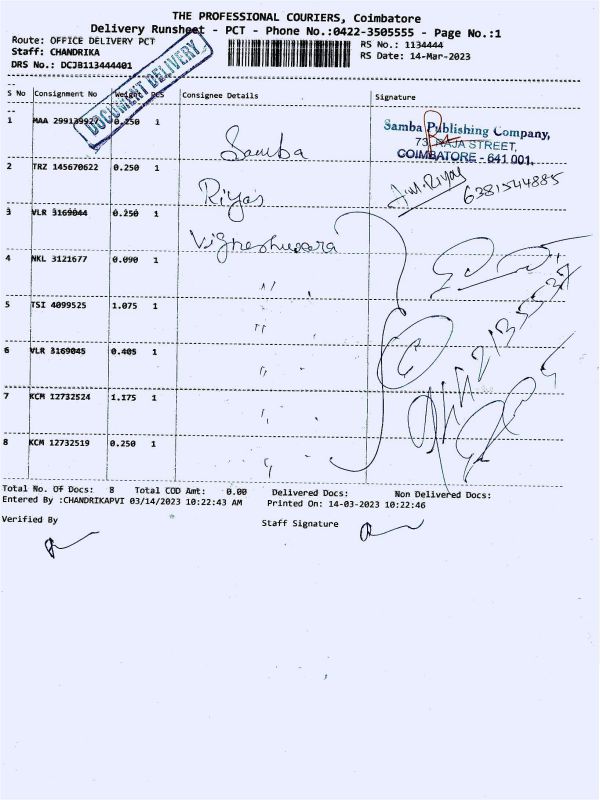 THE PROFESSIONAL COURIERS, Coimbatore
Delivery Runsheet - PCT - Phone No.:0422-3505555 - Page No.:1
Route: OFFICE DELIVERY PCT
RS No.: 1134444
Staff: CHANDRIKA
RS Date: 14-Mar-2023
DRS No.: DCJB113444401
DOCUMENT DELIVERY
S No Consignment No Weight PCS Consignee Details Signature
1 MAA 299139927 0.250 1 Samba
Samba Publishing Company,
73, RAJA STREET,
COIMBATORE - 641 001.
2 TRZ 145670622 0.250 1 Riyas 6381544885
3 VLR 3169044 0.250 1 Vigneshwara
4 NKL 3121677 0.090 1 "
5 TSI 4099525 1.075 1 "
6 VLR 3169045 0.405 1 "
7 KCM 12732524 1.175 1 "
8 KCM 12732519 0.250 1 "
Total No. Of Docs: 8 Total COD Amt: 0.00 Delivered Docs: Non Delivered Docs:
Entered By :CHANDRIKAPVI 03/14/2023 10:22:43 AM Printed On: 14-03-2023 10:22:46
Verified By Staff Signature